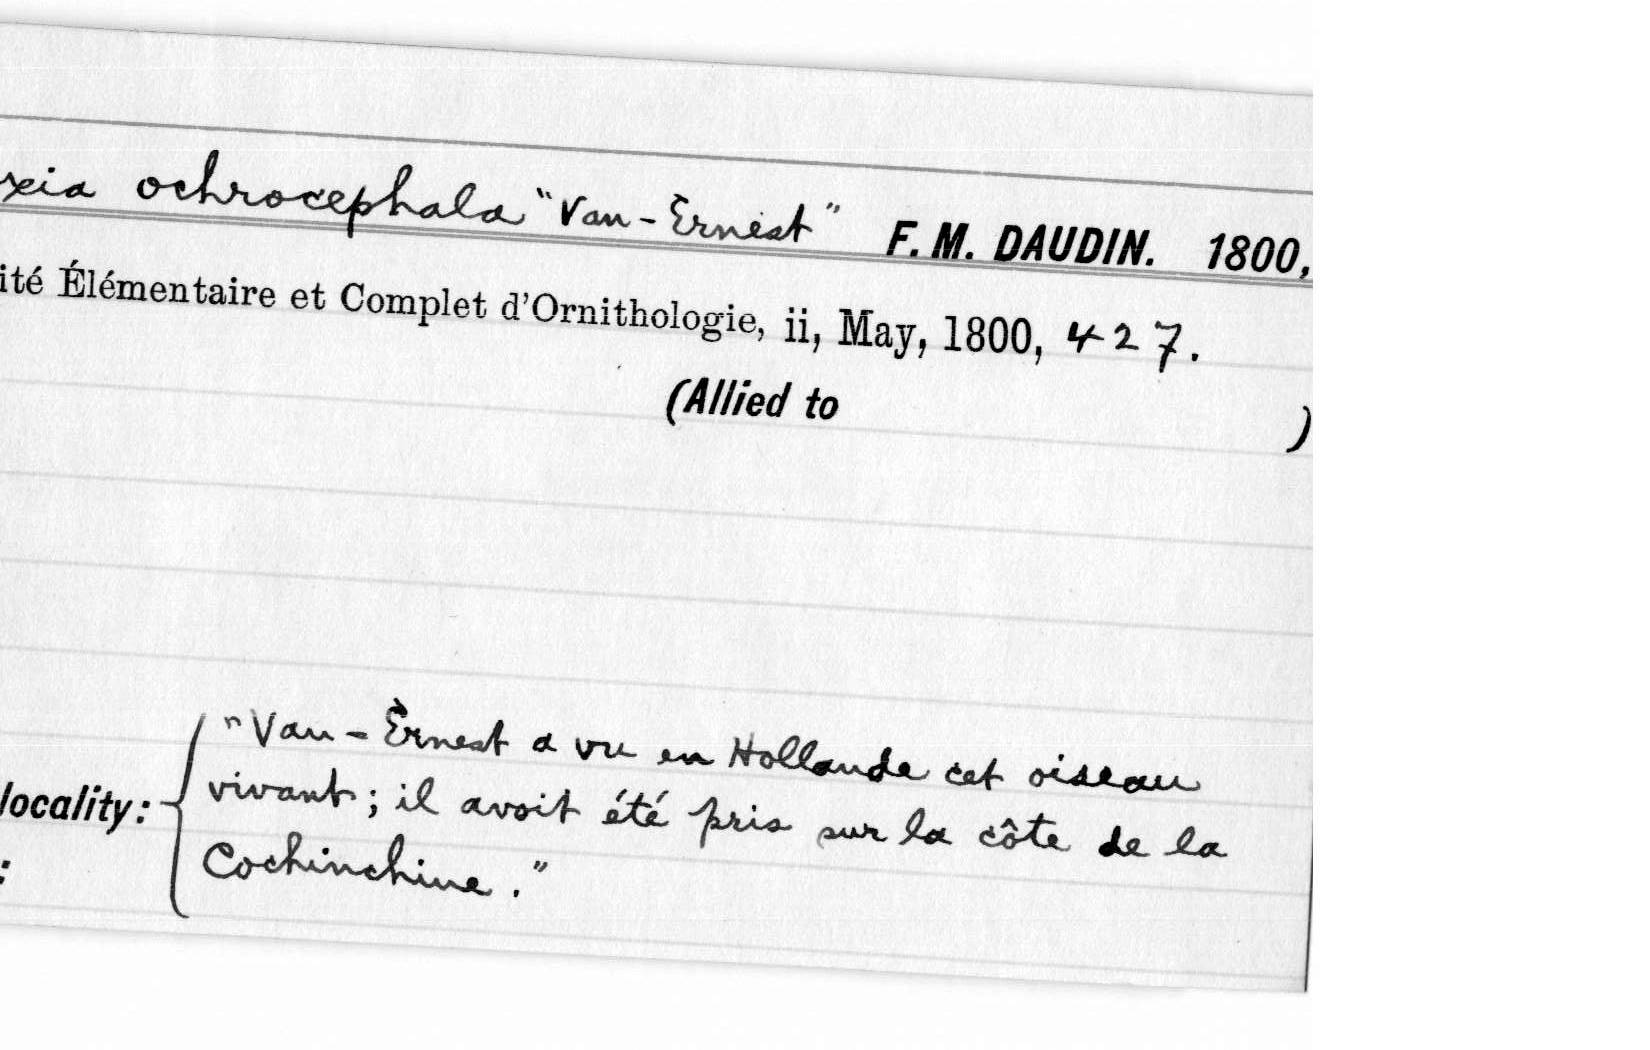 xia ochrocephala "Van-Èrnest" F. M. DAUDIN. 1800,
ité Élémentaire et Complet d'Ornithologie, ii, May, 1800, 427.
(Allied to )
"Van-Èrnest a vu en Hollande cet oiseau
vivant; il avoit été pris sur la côte de la
locality:
Cochinchine."
: